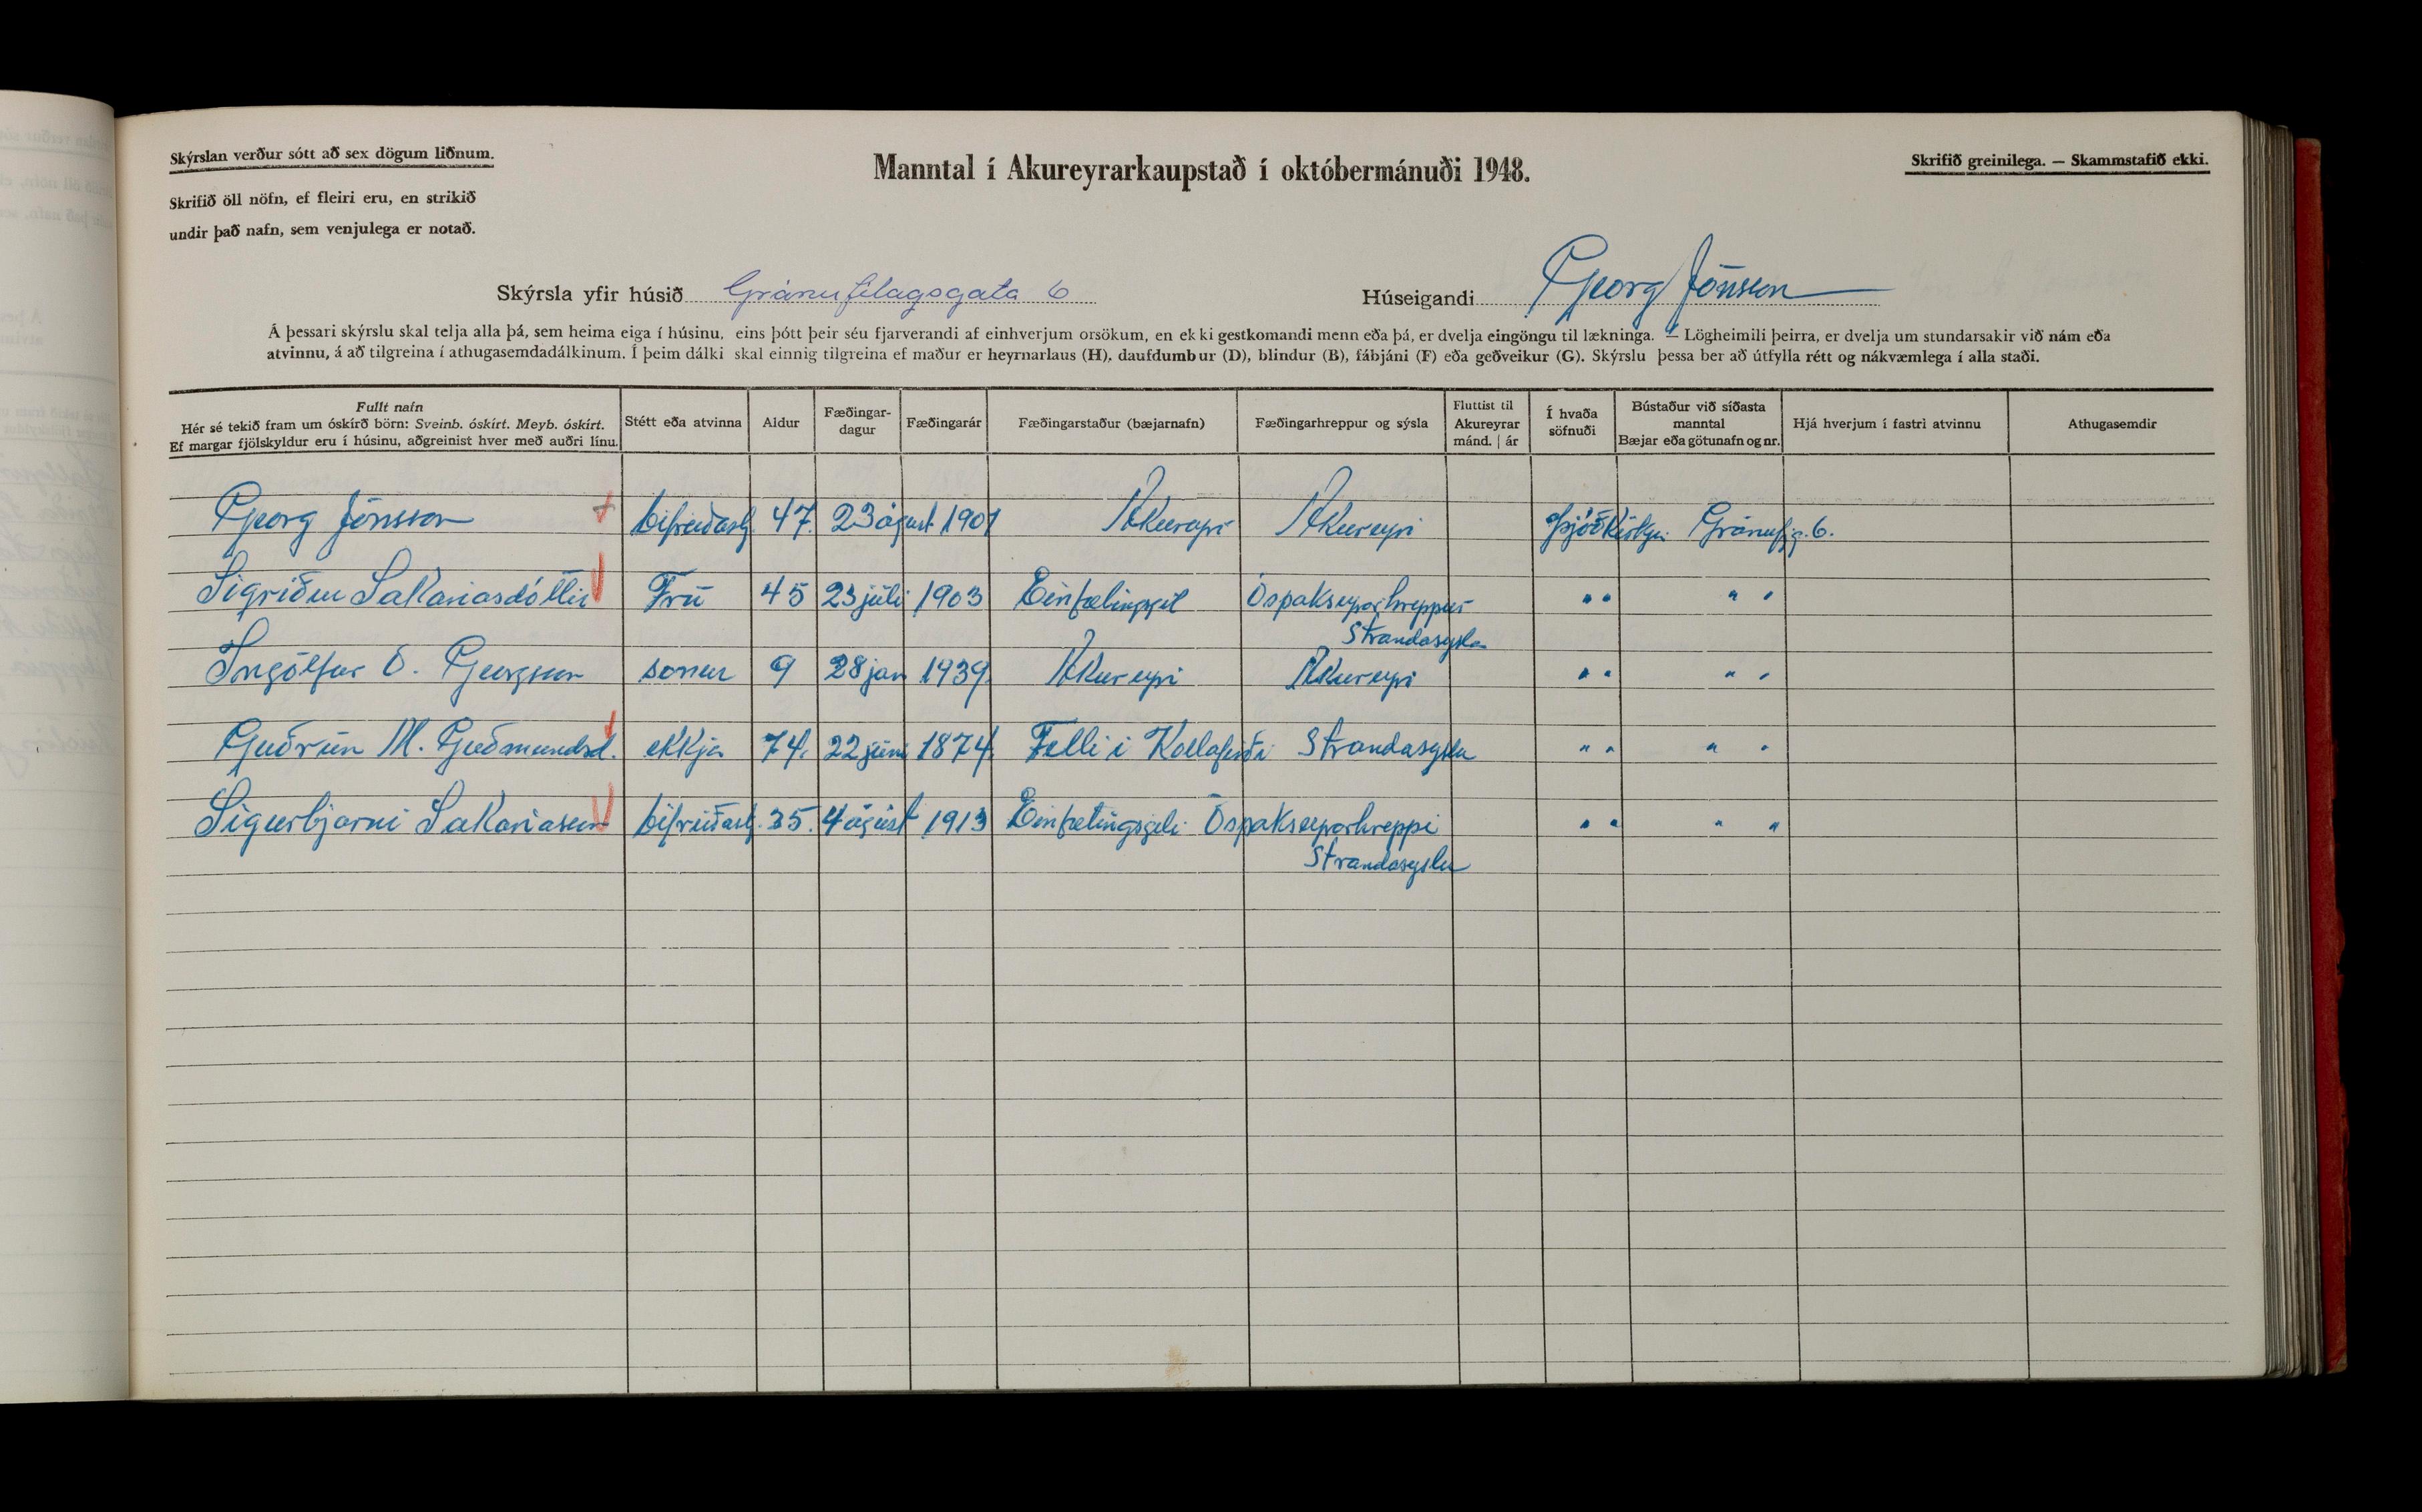 Skýrslan verður sótt að sex dögum liðnum.
Skrifið öll nöfn, ef fleiri eru, en strikið
undir það nafn, sem venjulega er notað.
Manntal í Akureyrarkaupstað í októbermánuði 1948.
Skrifið greinilega. — Skammstafið ekki.
Skýrsla yfir húsið Gránufélagsgata 6
Húseigandi Georg Jónsson
Á þessari skýrslu skal telja alla þá, sem heima eiga í húsinu, eins þótt þeir séu fjarverandi af einhverjum orsökum, en ekki gestkomandi menn eða þá, er dvelja eingöngu til lækninga. — Lögheimili þeirra, er dvelja um stundarsakir við nám eða
atvinnu, á að tilgreina í athugasemdadálkinum. Í þeim dálki skal einnig tilgreina ef maður er heyrnarlaus (H), daufdumbur (D), blindur (B), fábjáni (F) eða geðveikur (G). Skýrslu þessa ber að útfylla rétt og nákvæmlega í alla staði.
Fullt nafn
Hér sé tekið fram um óskírð börn: Sveinb. óskírt. Meyb. óskírt.
Ef margar fjölskyldur eru í húsinu, aðgreinist hver með auðri línu.
Stétt eða atvinna
Aldur
Fæðingar-
dagur
Fæðingarár
Fæðingarstaður (bæjarnafn)
Fæðingarhreppur og sýsla
Fluttist til
Akureyrar
mánd. | ár
Í hvaða
söfnuði
Bústaður við síðasta
manntal
Bæjar eða götunafn og nr.
Hjá hverjum í fastri atvinnu
Athugasemdir
Georg Jónsson bifreiðastj. 47. 23 ágúst 1901 Akureyri Akureyri Þjóðkirkju Gránufjg. 6.
Sigriður Sakariasdóttir Frú 45 23 júli 1903 Einfætingsgil Óspakseyrarhreppur " " " "
Strandasysla
Ingólfur O. Georgsson sonur 9 28 jan 1939. Akureyri Akureyri " " " "
Guðrún M. Guðmundsd. ekkja 74. 22 júni 1874. Felli i Kollafirði Strandasyslu " " " "
Sigurbjarni Sakariasson bifreiðastj. 35. 4 ágúst 1913 Einfætingsgili Óspakseyrarhreppi " " " "
Strandasyslu